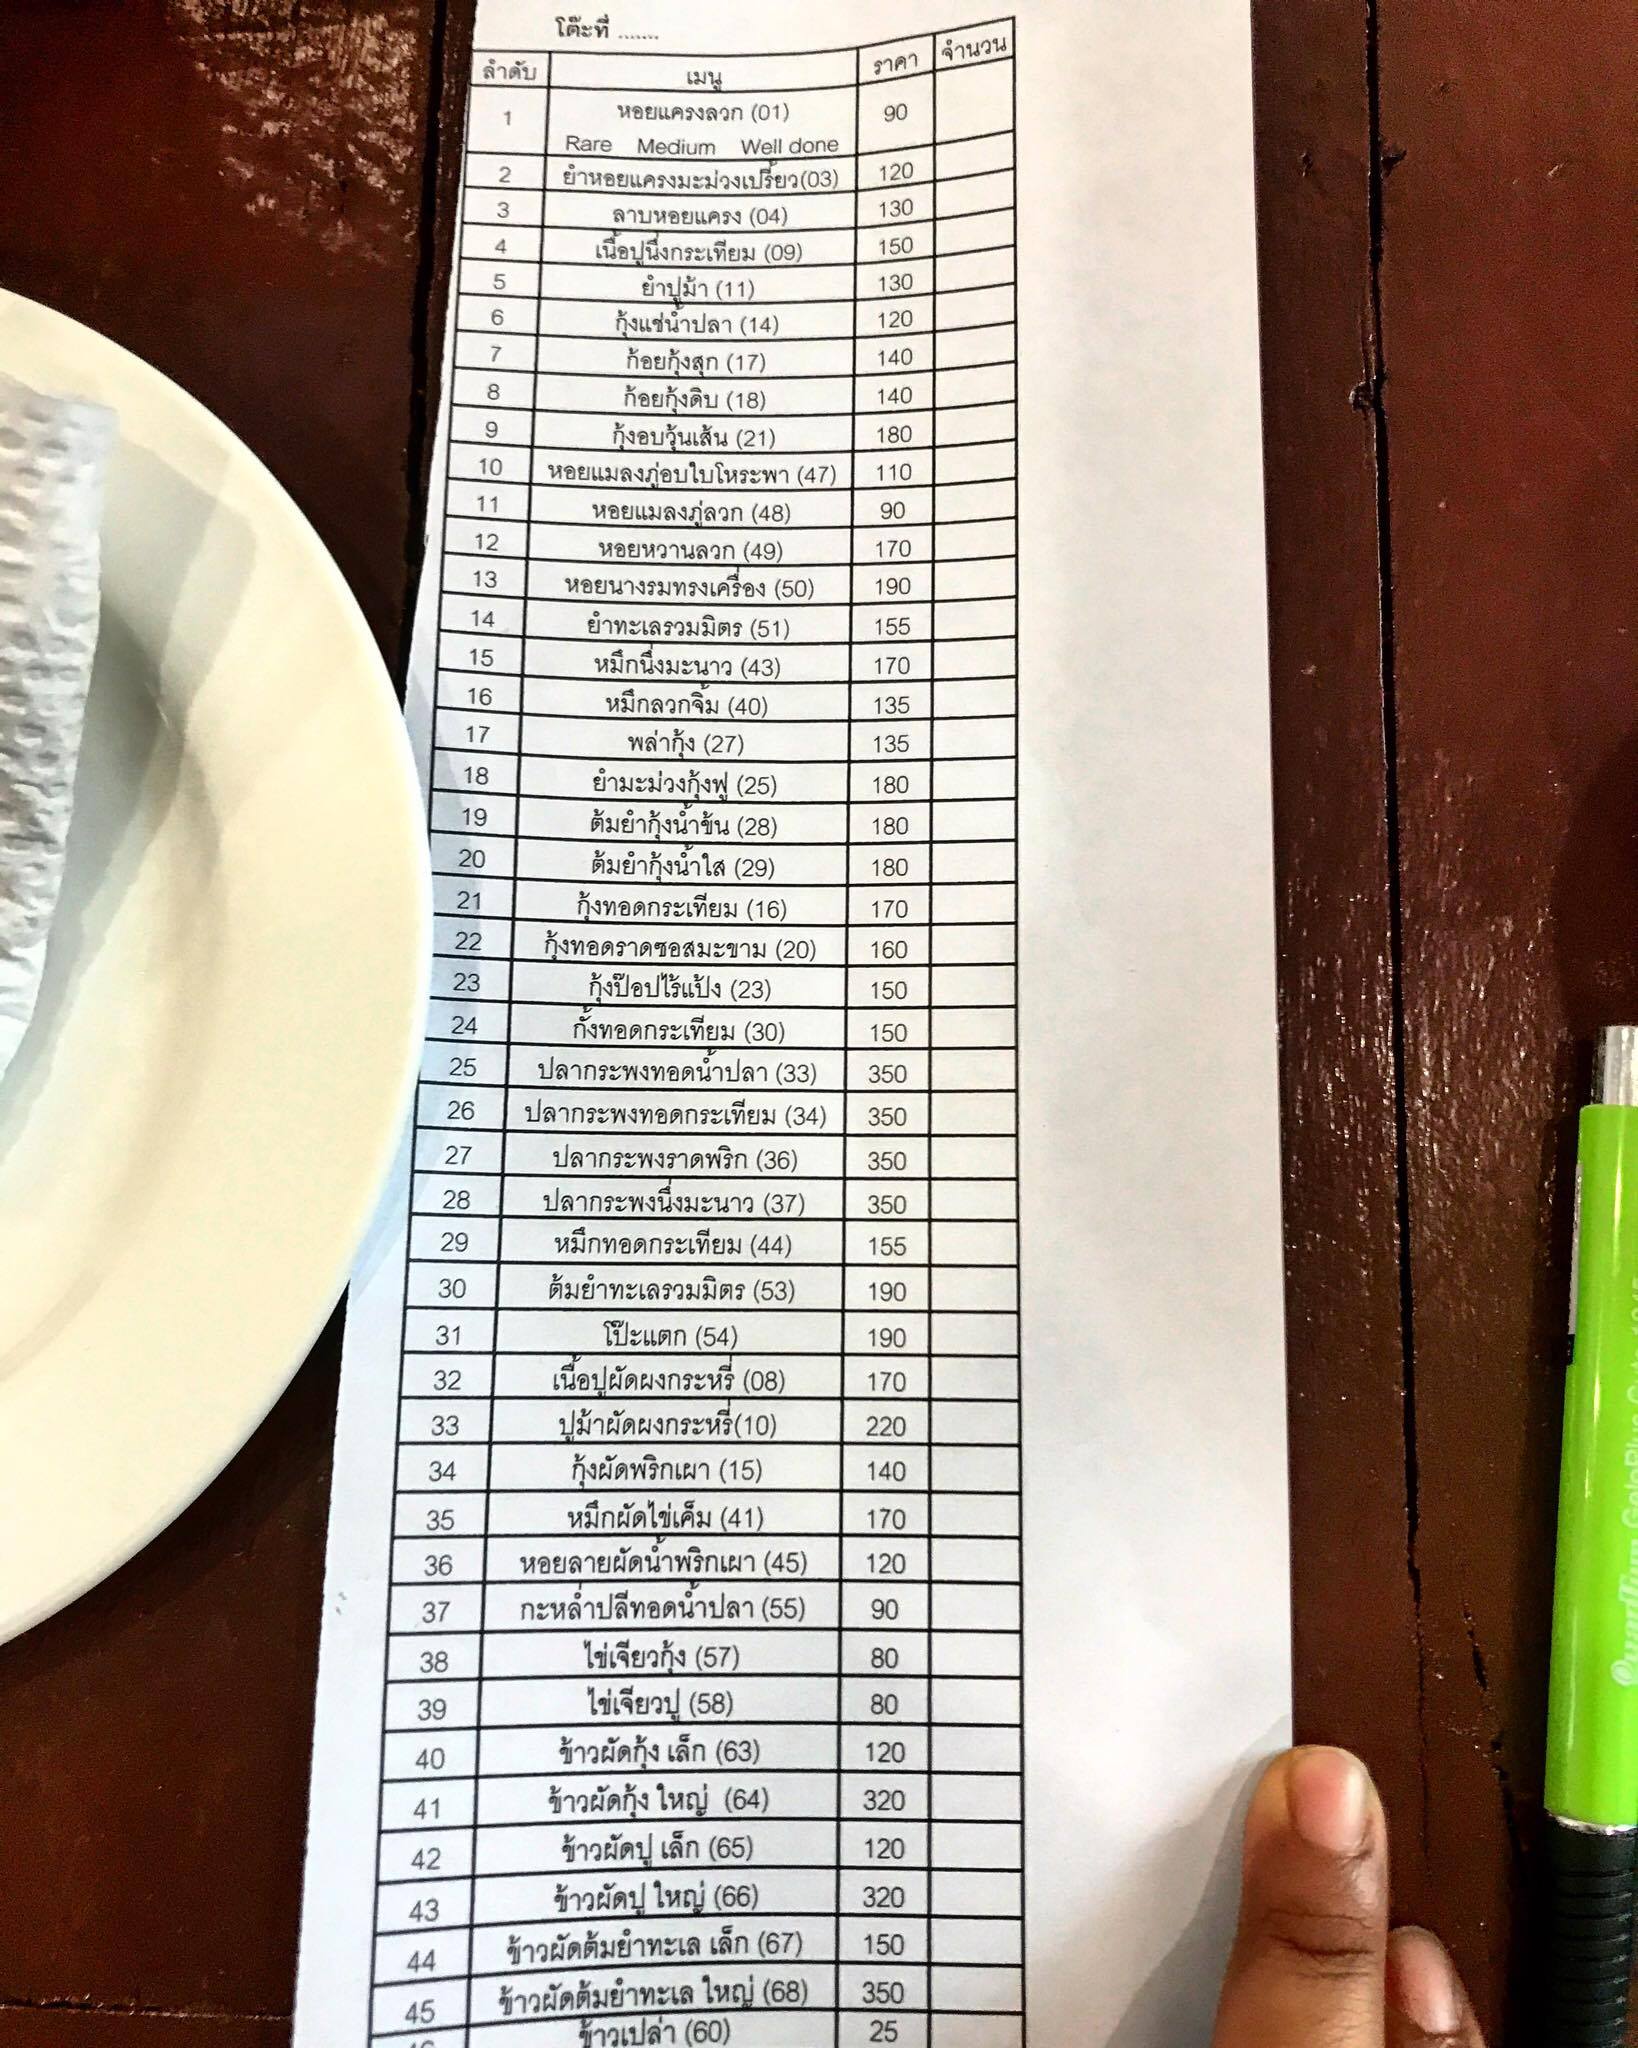 โต๊ะที่ .......
ลำดับ เมนู ราคา จำนวน
1 หอยแครงลวก (01) 90
Rare Medium Well done
2 ยำหอยแครงมะม่วงเปรี้ยว(03) 120
3 ลาบหอยแครง (04) 130
4 เนื้อปูนึ่งกระเทียม (09) 150
5 ยำปูม้า (11) 130
6 กุ้งแช่น้ำปลา (14) 120
7 ก้อยกุ้งสุก (17) 140
8 ก้อยกุ้งดิบ (18) 140
9 กุ้งอบวุ้นเส้น (21) 180
10 หอยแมลงภู่อบใบโหระพา (47) 110
11 หอยแมลงภู่ลวก (48) 90
12 หอยหวานลวก (49) 170
13 หอยนางรมทรงเครื่อง (50) 190
14 ยำทะเลรวมมิตร (51) 155
15 หมึกนึ่งมะนาว (43) 170
16 หมึกลวกจิ้ม (40) 135
17 พล่ากุ้ง (27) 135
18 ยำมะม่วงกุ้งฟู (25) 180
19 ต้มยำกุ้งน้ำข้น (28) 180
20 ต้มยำกุ้งน้ำใส (29) 180
21 กุ้งทอดกระเทียม (16) 170
22 กุ้งทอดราดซอสมะขาม (20) 160
23 กุ้งป๊อปไร้แป้ง (23) 150
24 กั้งทอดกระเทียม (30) 150
25 ปลากระพงทอดน้ำปลา (33) 350
26 ปลากระพงทอดกระเทียม (34) 350
27 ปลากระพงราดพริก (36) 350
28 ปลากระพงนึ่งมะนาว (37) 350
29 หมึกทอดกระเทียม (44) 155
30 ต้มยำทะเลรวมมิตร (53) 190
31 โป๊ะแตก (54) 190
32 เนื้อปูผัดผงกระหรี่ (08) 170
33 ปูม้าผัดผงกระหรี่(10) 220
34 กุ้งผัดพริกเผา (15) 140
35 หมึกผัดไข่เค็ม (41) 170
36 หอยลายผัดน้ำพริกเผา (45) 120
37 กะหล่ำปลีทอดน้ำปลา (55) 90
38 ไข่เจียวกุ้ง (57) 80
39 ไข่เจียวปู (58) 80
40 ข้าวผัดกุ้ง เล็ก (63) 120
41 ข้าวผัดกุ้ง ใหญ่ (64) 320
42 ข้าวผัดปู เล็ก (65) 120
43 ข้าวผัดปู ใหญ่ (66) 320
44 ข้าวผัดต้มยำทะเล เล็ก (67) 150
45 ข้าวผัดต้มยำทะเล ใหญ่ (68) 350
ข้าวเปล่า (60) 25
Quantum GeloPlus